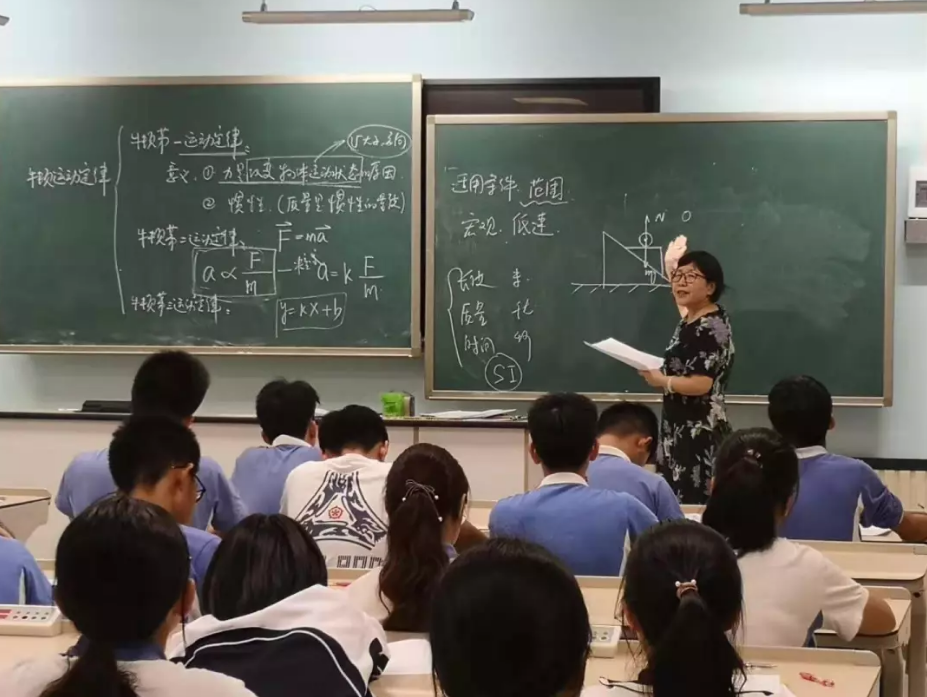 牛顿运动定律
牛顿第一运动定律:
意义. ① 力是改变物体运动状态的原因.
② 惯性. (质量是惯性的量度)
牛顿第二运动定律: F⃗=ma⃗
a ∝ F/m a = k F/m
牛顿第三运动定律: y=kx+b
适用条件 范围
宏观. 低速.
长度 米.
质量 千克
时间 秒
SI
N